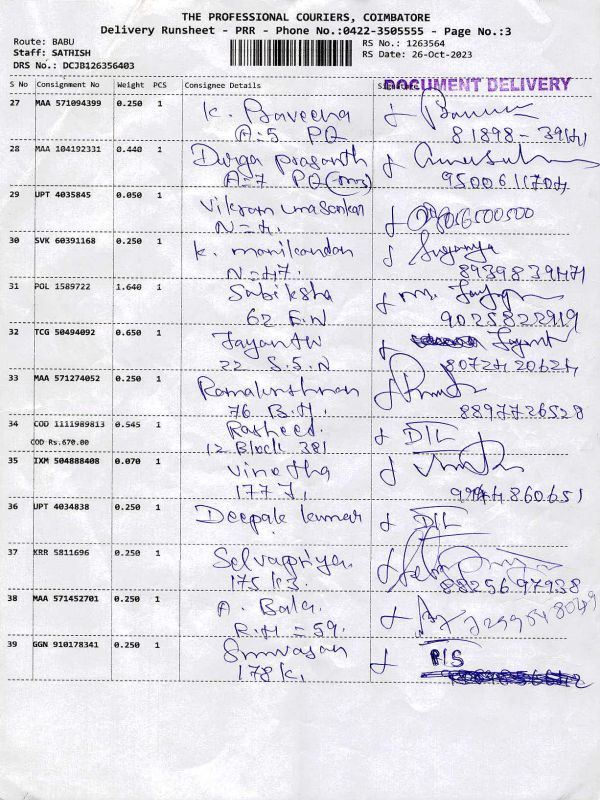 THE PROFESSIONAL COURIERS, COIMBATORE
Delivery Runsheet - PRR - Phone No.:0422-3505555 - Page No.:3
Route: BABU
RS No.: 1263564
Staff: SATHISH
RS Date: 26-Oct-2023
DRS No.: DCJB126356403
DOCUMENT DELIVERY
S No Consignment No Weight PCS Consignee Details
27 MAA 571094399 0.250 1 K. Praveena
A=5 PQ
28 MAA 104192331 0.440 1 Durga prasanth
A=7 PQ
29 UPT 4035845 0.050 1 Vikram umasankar
N=4.
30 SVK 60391168 0.250 1 K. manikandan Suganya
N=47. 8939839471
31 POL 1589722 1.640 1 Sabiksha
62 E.N 9025822919
32 TCG 50494092 0.650 1
22 S.S.N 8072420624
33 MAA 571274052 0.250 1 Ramakrishnan
76 B.H. 8897726528
34 COD 1111989813 0.545 1 Rasheed. DIL
COD Rs.670.00 12 Block 381
35 IXM 504888408 0.070 1 Vinetha
177 J.
36 UPT 4034838 0.250 1 Deepak kumar DIL
37 KRR 5811696 0.250 1 Selvapriya.
175 K3. 8825697938
38 MAA 571452701 0.250 1 A. Bala.
R.H = 59.
39 GGN 910178341 0.250 1 Srinivasan P/S
178 K.